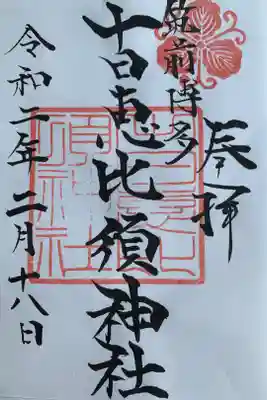 奉拝
筑前博多
十日恵比須神社
令和二年二月十八日